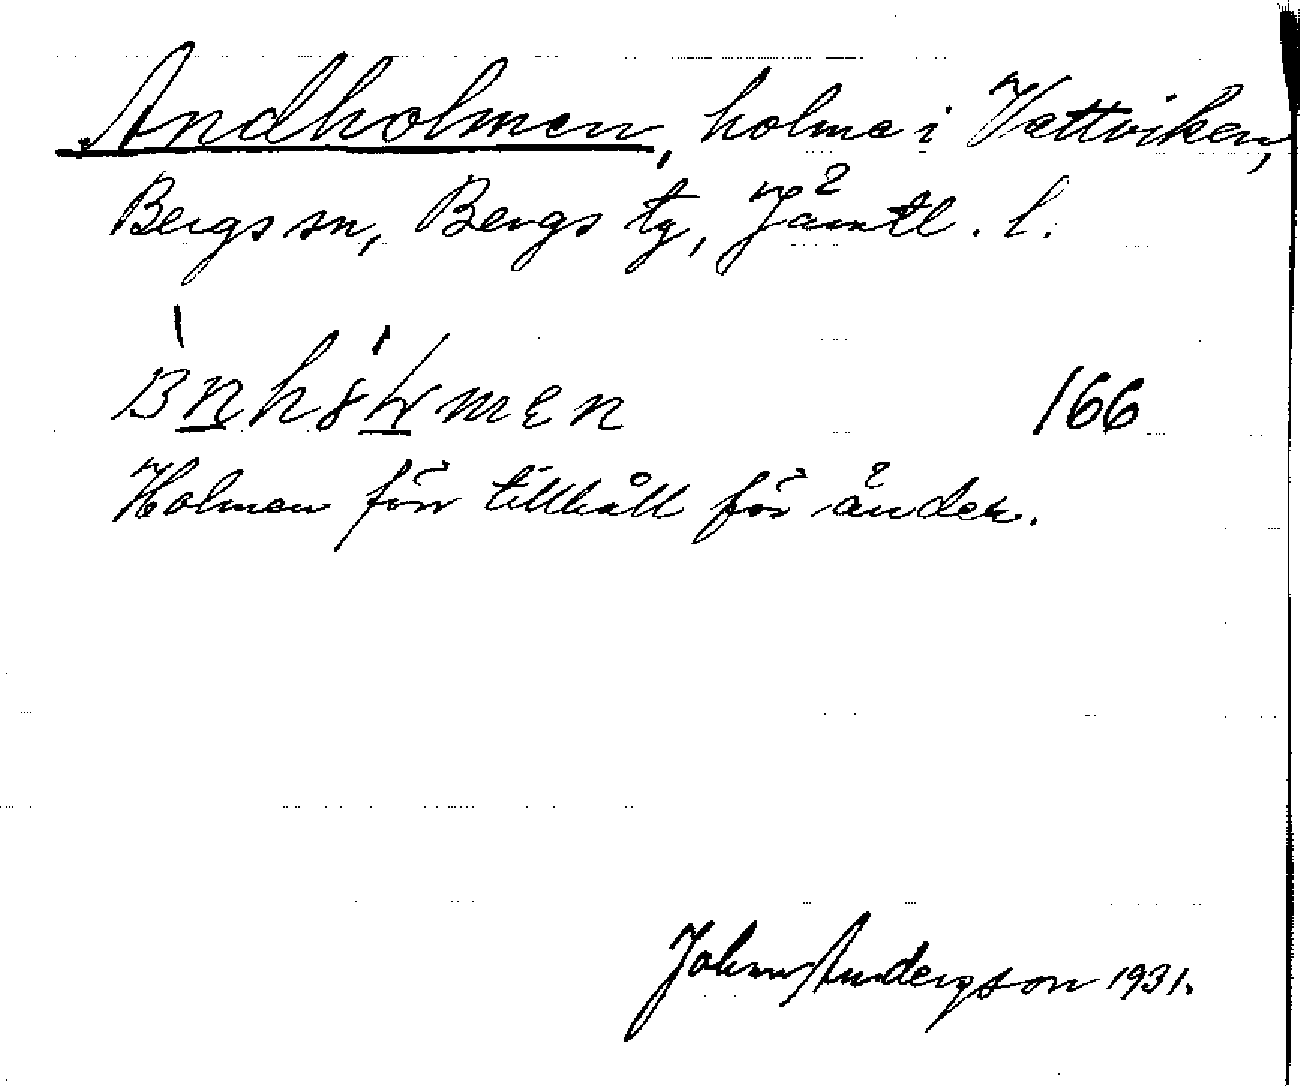 Andholmen, holme i Vattviken,
Bergs sn, Bergs tg, Jämtl. l.
166
Holmen för tillhåll för änder.
Johan Andersson 1931.